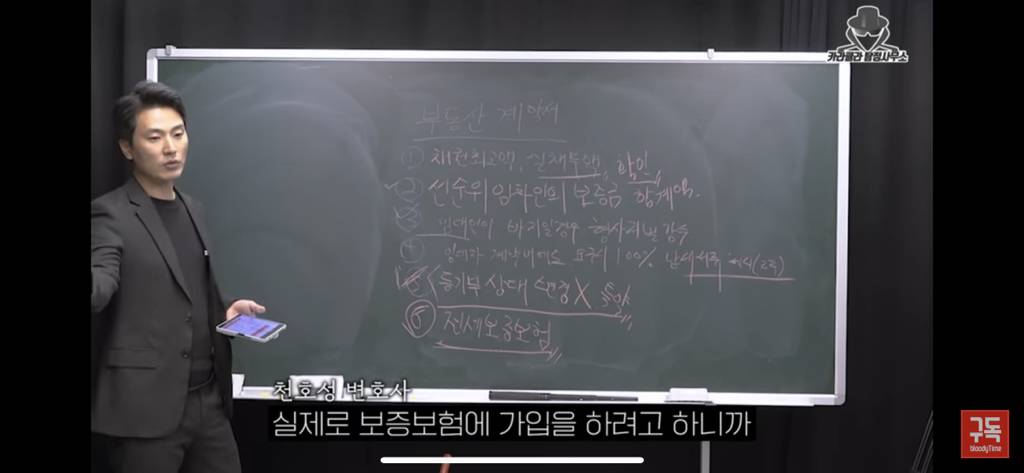 카라큘라 탐정사무소
부동산 계약서
① 채권최고액, 실채무액, 확인
② 선순위 임차인의 보증금 합계액.
③ 임대인이 바지일경우 형사처벌 감수
④ 임여차 계약 표구시 100%
⑤ 등기부 상태 변경 X
⑥ 전세보증보험
천호성 변호사
실제로 보증보험에 가입을 하려고 하니까
구독
bloodyTime